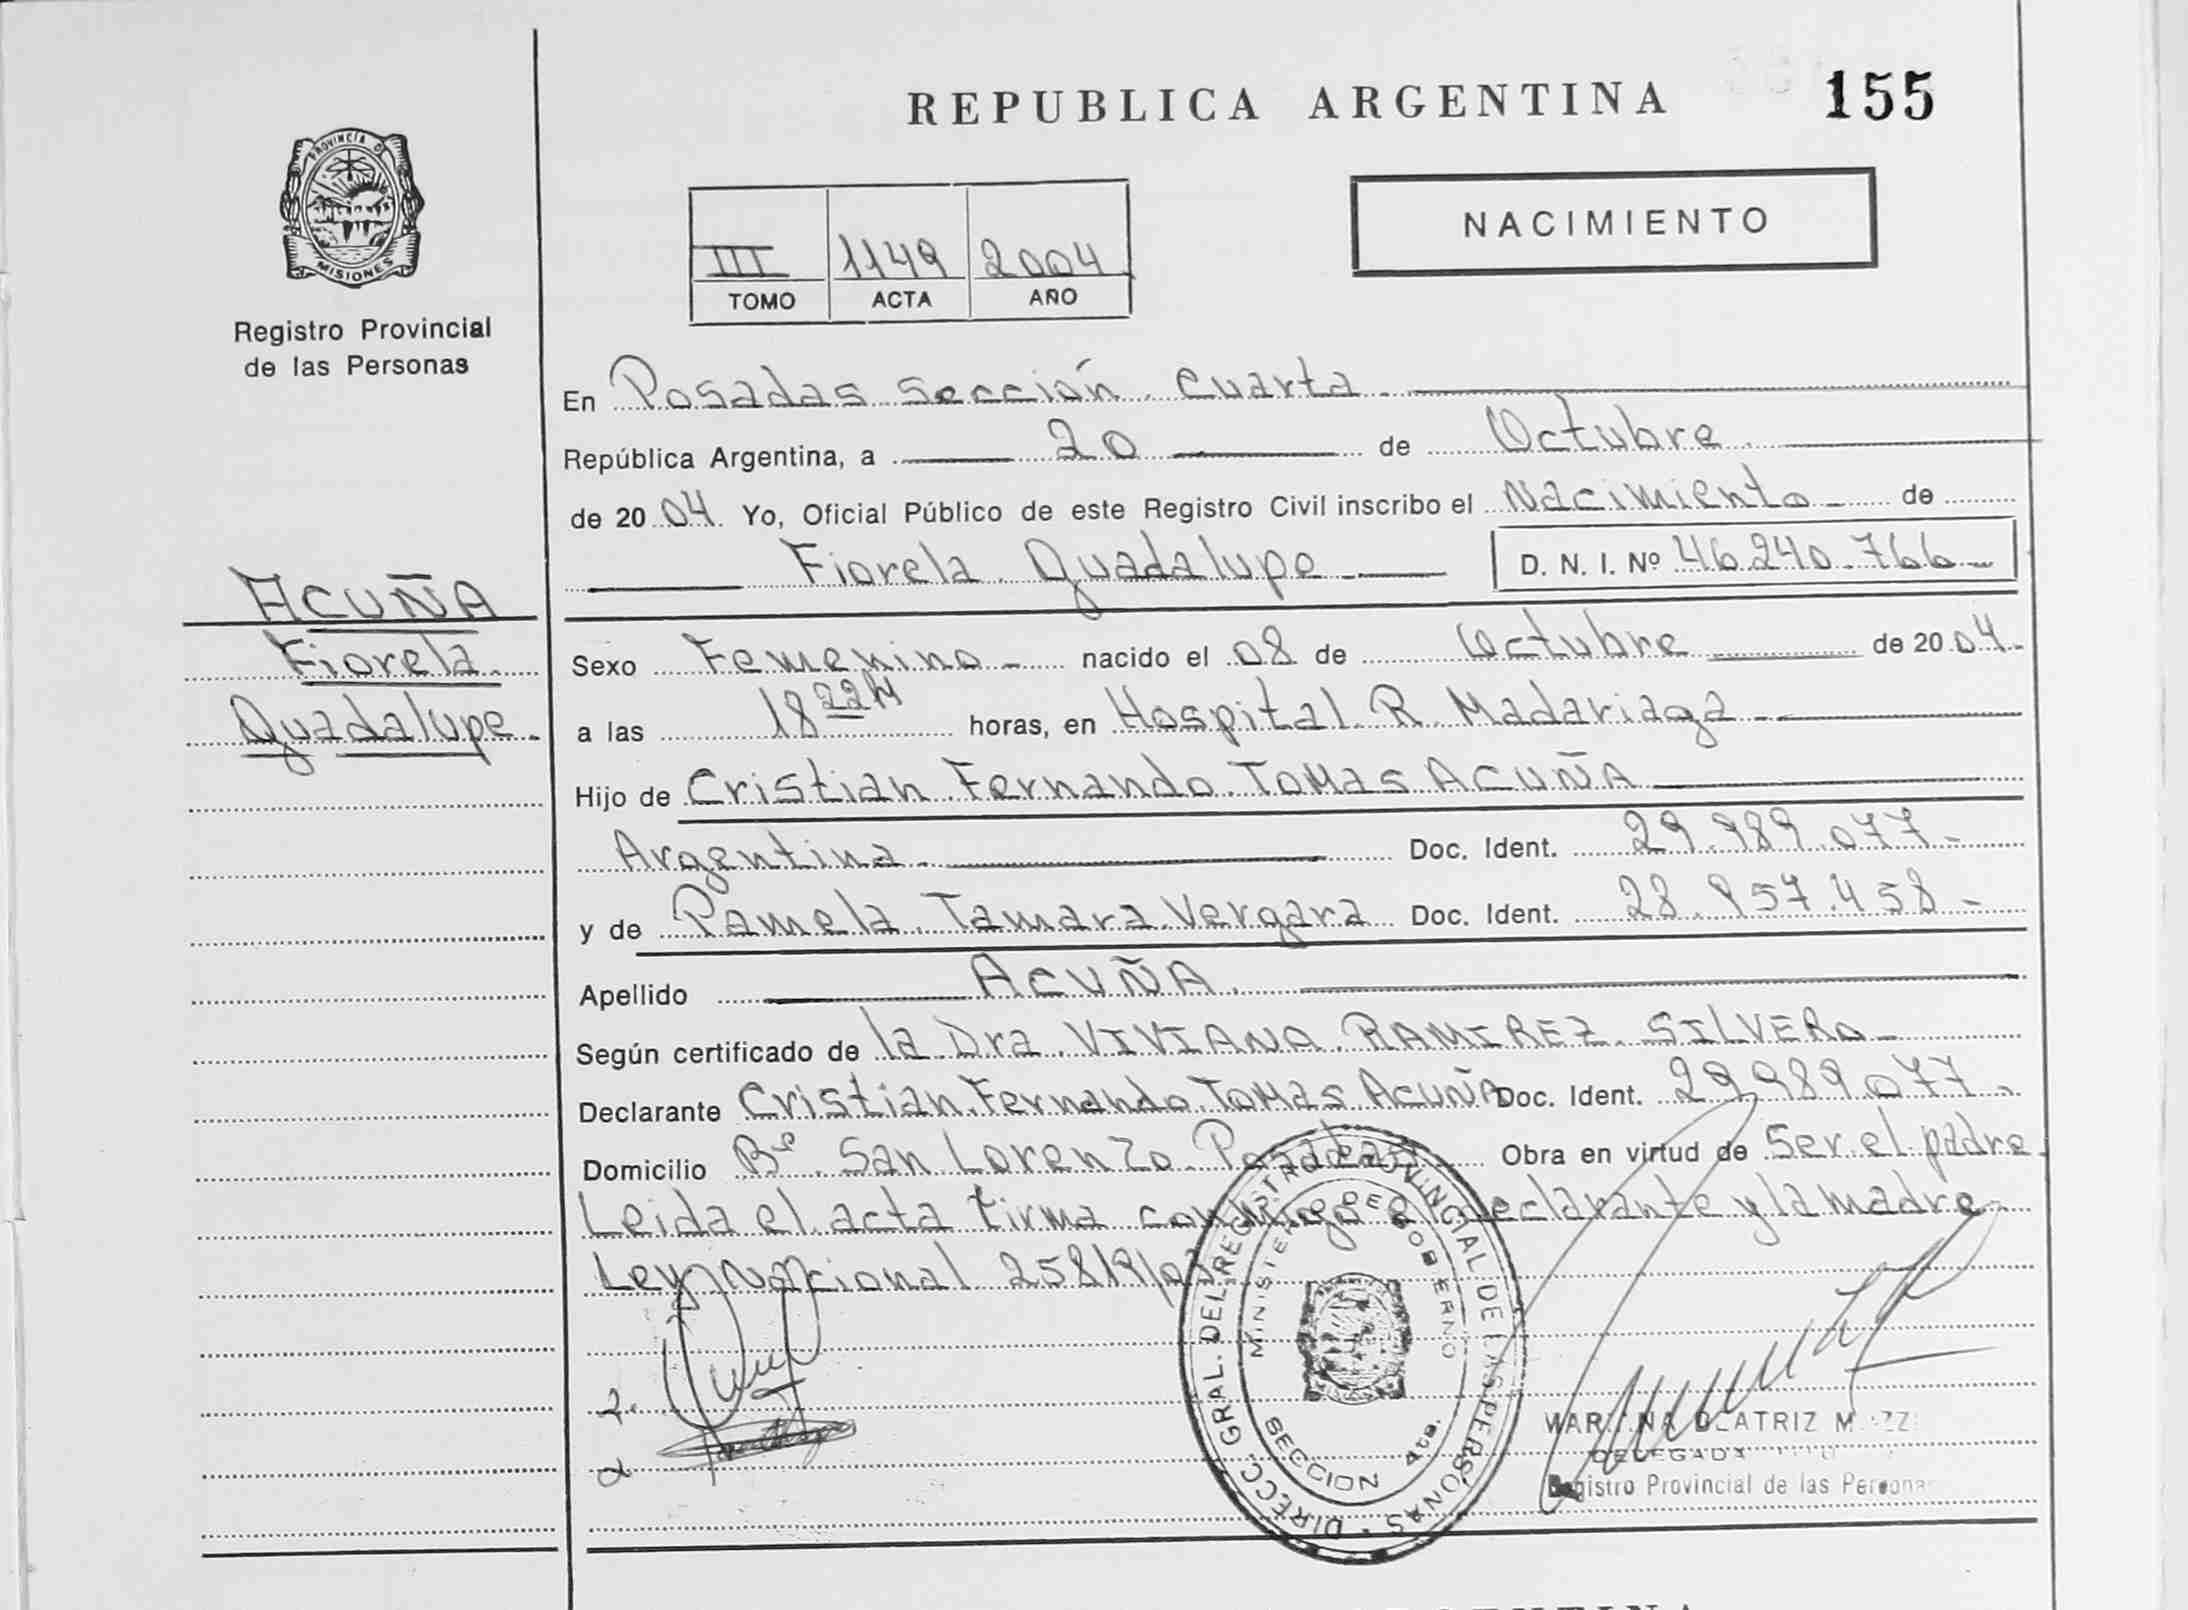 REPUBLICA ARGENTINA 155
PROVINCIA D
MISIONES
Registro Provincial
de las Personas
NACIMIENTO
III 1149 2004
TOMO ACTA AÑO
En Posadas Sección Cuarta.
República Argentina, a 20 de Octubre.
de 2004. Yo, Oficial Público de este Registro Civil inscribo el Nacimiento de
Fiorela Guadalupe D. N. I. Nº 46.240.766
ACUÑA
Fiorela
Guadalupe.
Sexo Femenino nacido el 08 de Octubre de 2004
a las 18 22 M horas, en Hospital R Madariaga
Hijo de Cristian Fernando Tomas ACUÑA
Argentina Doc. Ident. 29.989.077-
y de Pamela Tamara Vergara Doc. Ident. 28.957.458-
Apellido ACUÑA.
Según certificado de la Dra VIVIANA RAMIREZ SILVERO
Declarante Cristian Fernando Tomas Acuña Doc. Ident. 29989077-
Domicilio Bº San Lorenzo Posadas Obra en virtud de Ser el padre
Leida el acta firma conmigo el declarante y la madre
Ley Nacional 25819/03
DIRECC. GRAL. DEL REGISTRO PROVINCIAL DE LAS PERSONAS
MINISTERIO DE GOBIERNO
SECCION 4ta.
BEATRIZ
DELEGADA
Registro Provincial de las Personas